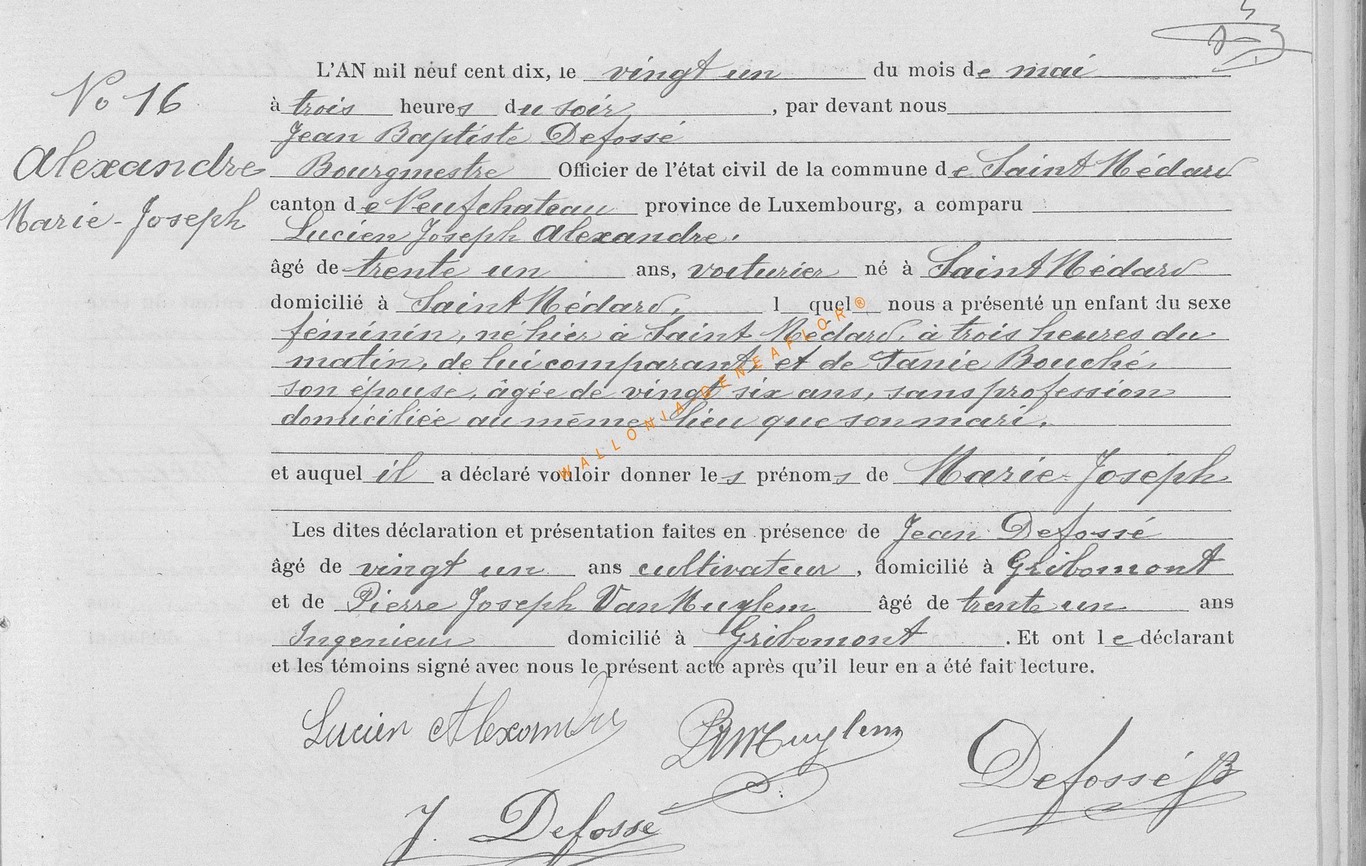 L'AN mil neuf cent dix, le vingt un du mois de mai
No 16
à trois heures du soir, par devant nous
Jean Baptiste Defossé
Alexandre
Bourgmestre Officier de l'état civil de la commune de Saint Médard
Marie-Joseph
canton de Neufchateau province de Luxembourg, a comparu
Lucien Joseph Alexandre.
âgé de trente un ans, voiturier né à Saint Médard
domicilié à Saint Médard, l quel nous a présenté un enfant du sexe
féminin, né hier à Saint Médard, à trois heures du
matin, de lui comparant, et de Fanie Bouché,
son épouse, âgée de vingt six ans, sans profession
domiciliée au même lieu que son mari.
WALLONIA GENEAFLOR®
et auquel il a déclaré vouloir donner les prénoms de Marie-Joseph
Les dites déclaration et présentation faites en présence de Jean Defossé
âgé de vingt un ans cultivateur, domicilié à Gribomont
et de Pierre Joseph VanMuylem âgé de trente un ans
Ingenieur domicilié à Gribomont. Et ont le déclarant
et les témoins signé avec nous le présent acte après qu'il leur en a été fait lecture.
Lucien Alexandre
Muylem
Defossé JB
J. Defossé